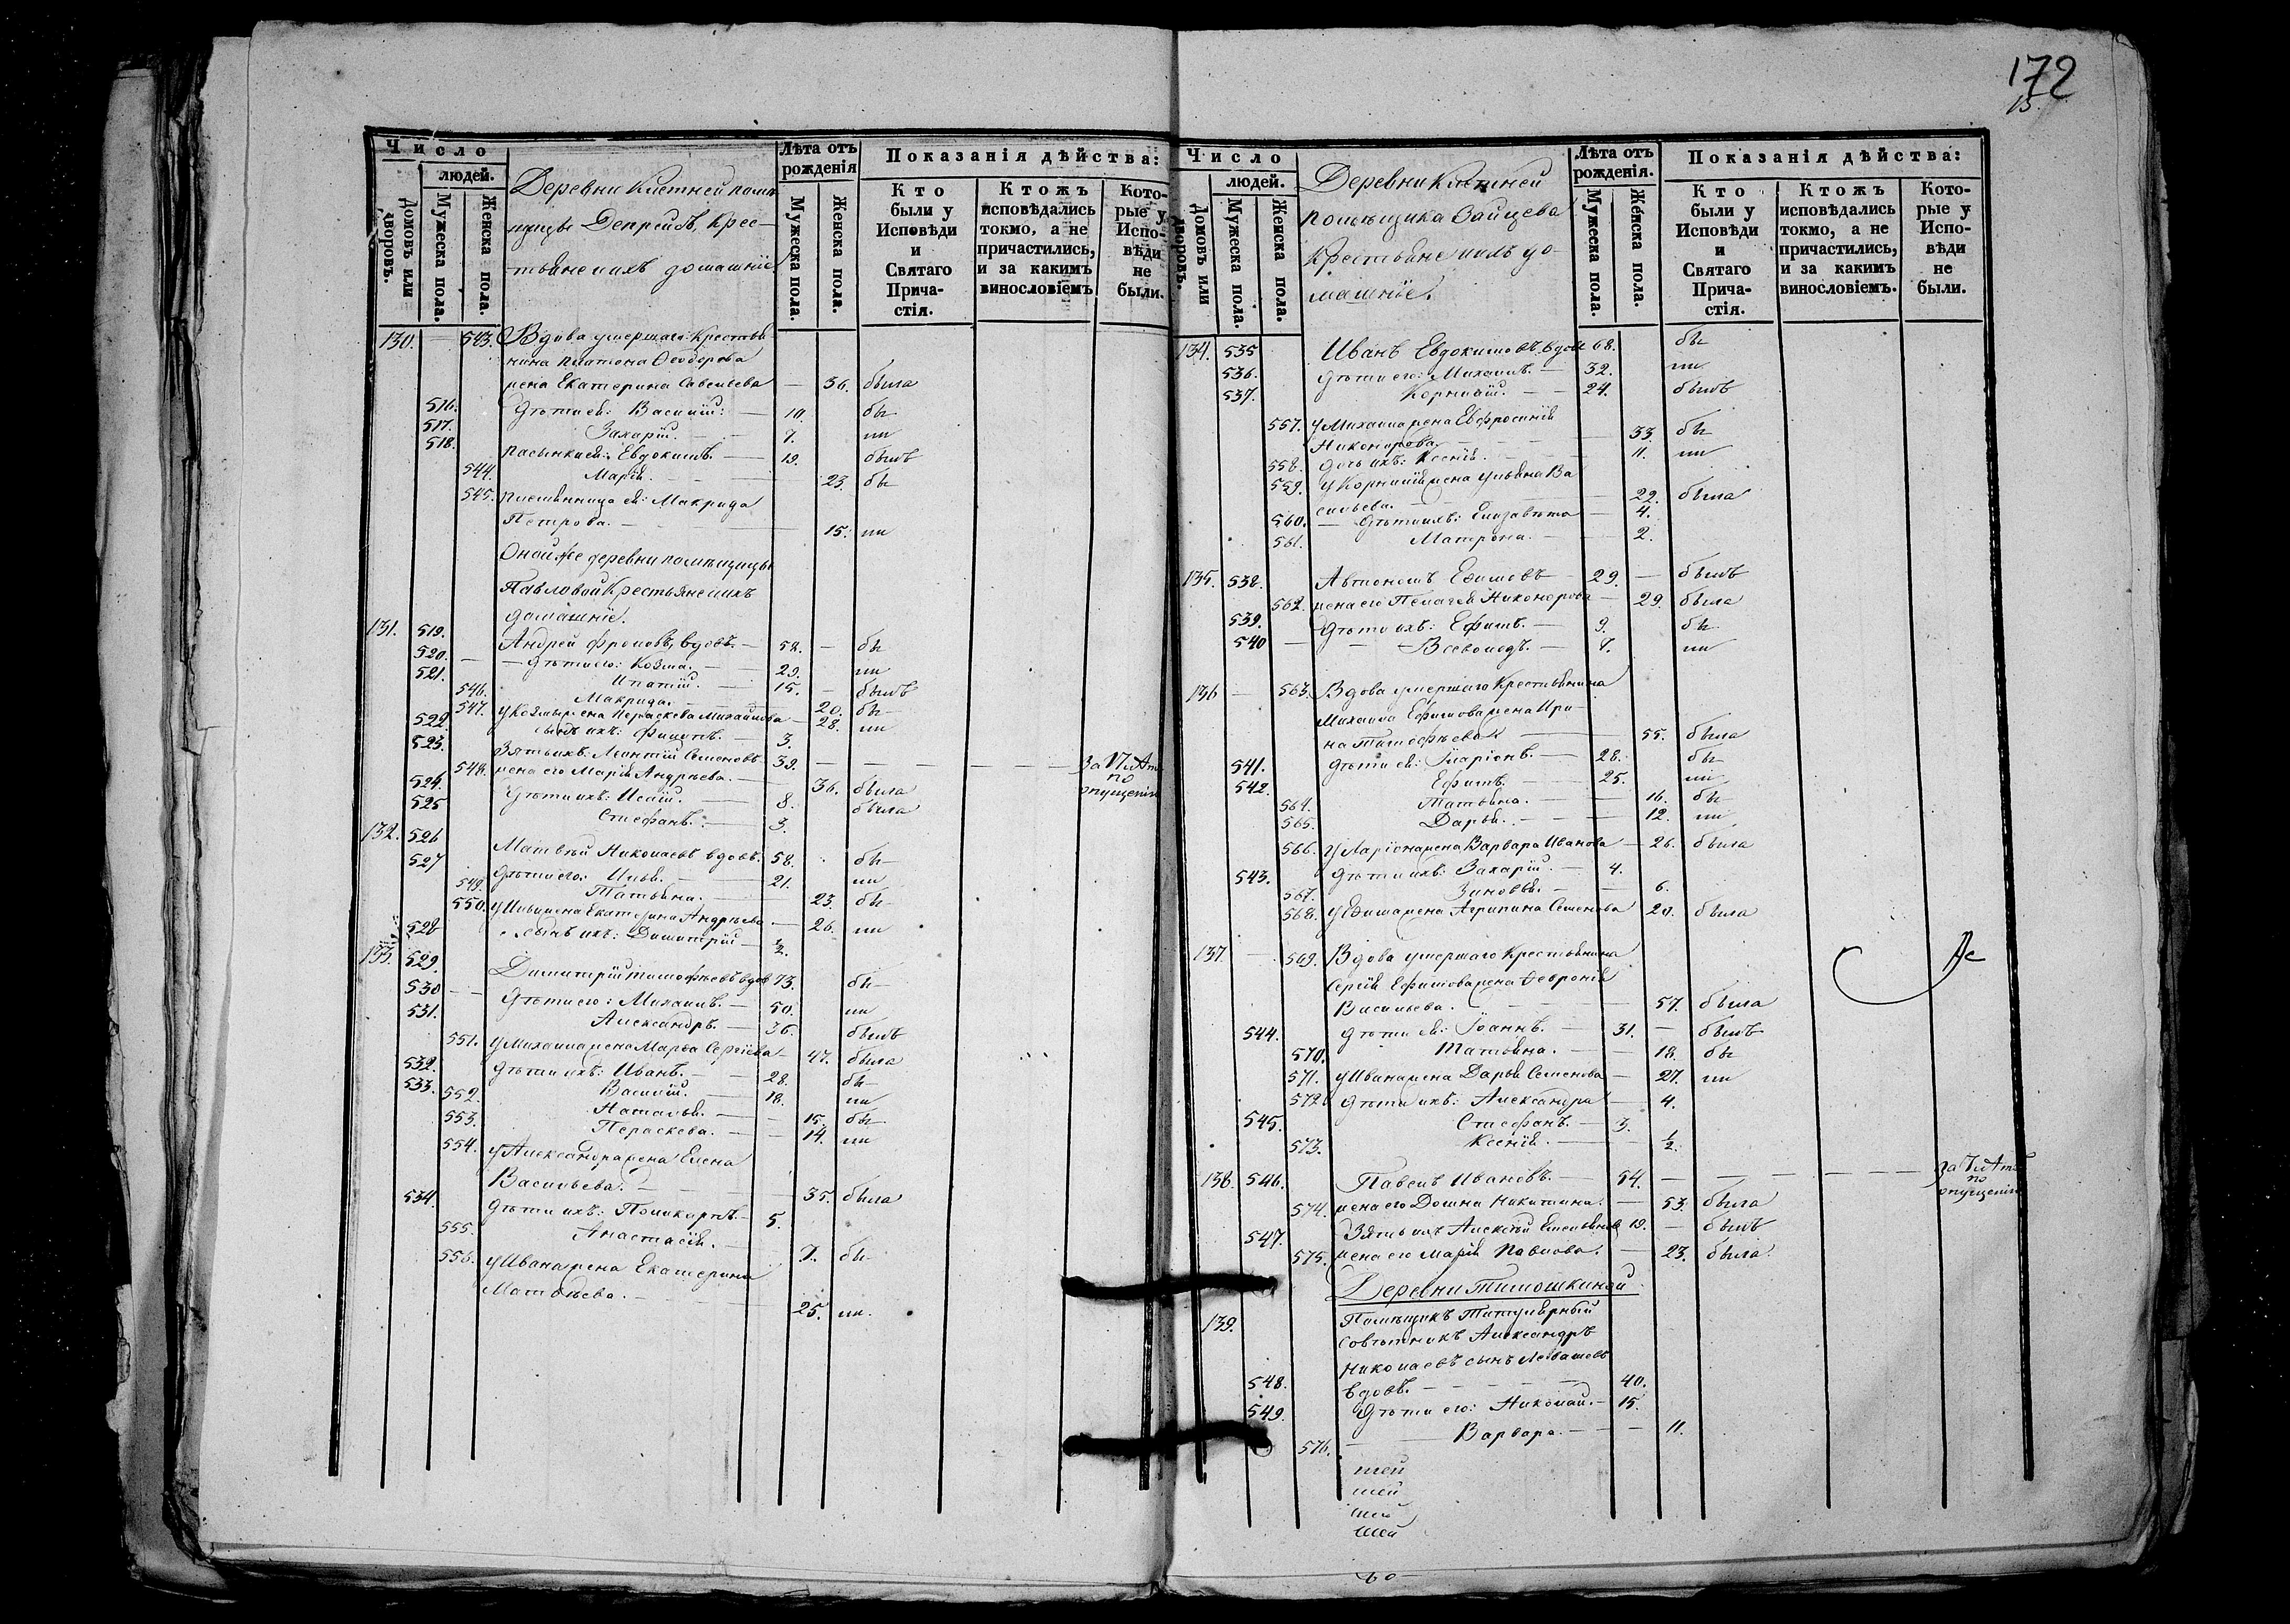 172
15.
Число
людей.
Домовъ или дворовъ.
Мужеска пола.
Женска пола.
Деревни Клетней помѣ-
щицы Депрейсъ, крес-
тьяне и ихъ домашніе.
Лѣта отъ рожденія
Мужеска пола.
Женска пола.
Показанія дѣйства:
Кто были у Исповѣди и Святаго Прича-стія.
Ктожъ исповѣдались токмо, а не причастились, и за какимъ винословіемъ
Кото-рые у Испо-вѣди не были.
130. — 543. Вдова умершаго Крестья-
нина Платона Ѳеодорова
жена Екатерина Савельева — 36. была
516. Дѣти ея: Василій: — 10. бы
517. Захарій. — 7. ли
518. Пасынки ея: Евдокимъ. — 19. былъ
544. Марія. — 23. бы
545. Племянница ея: Макрида
Петрова. — 15. ли
Оной же деревни помѣщицы
Павловой Крестьяне и ихъ
домашніе.
131. 519. Андрей Фроловъ, вдовъ. — 52. — бы
520. — Дѣти его: Козма. — 29. ли
521. Ипатій. — 15. — былъ
546. Макрида. — 20. бы
547. у Козмы жена Параскева Михайлова — 28. ли
522. сынъ ихъ: Филипъ. — 3.
523. Зять ихъ: Леонтій Семеновъ — 39. — — — — За 1 лѣто по опущенію
548. жена его Марія Андреева. — 36. была
524. Дѣти ихъ: Исаій. — 8. была
525 Стефанъ. — 3.
132. 526 Матвѣй Николаевъ вдовъ. 58. бы
527 Дѣти его: Илья. — 21. ли
549. Татьяна. — 23. бы
550. у Ильи жена Екатерина Андреева — 26. ли
528 сынъ ихъ: Димитрій — ½.
133. 529. Димитрій Тимофѣевъ вдов 73. бы
530 — Дѣти его: Михаилъ. — 50. ли
531. Александръ. — 36. былъ
551. у Михаила жена Марѳа Сергіева — 47. была
532. Дѣти ихъ: Иванъ. — 28. бы
533. Василій. — 18. ли
552. Наталья. — 15. бы
553. Параскева. — 14. ли
554. у Александра жена Елена
Васильева. — 35. была
534. Дѣти ихъ: Поликарпъ. — 5.
555. Анастасія. — 7. бы
556. у Ивана жена Екатерина
Матвѣева. — 25. ли.
Число
людей.
Домовъ или дворовъ.
Мужеска пола.
Женска пола.
Деревни Клетней
помѣщика Зайцева
Крестьяне и ихъ до-
машніе.
Лѣта отъ рожденія.
Мужеска пола.
Женска пола.
Показанія дѣйства:
Кто были у Исповѣди и Святаго Прича-стія.
Ктожъ исповѣдались токмо, а не причастились, и за какимъ винословіемъ.
Кото-рые у Испо-вѣди не были.
134. 535 Иванъ Евдокимовъ, вдов 68. бы
536. Дѣти его: Михаилъ. — 32. ли
537. Корнилій. — 24. былъ
557. у Михаила жена Евфросинія
Никонорова. — 33. бы
558. дочь ихъ: Ксенія. — 11. ли
559. у Корнилія жена Ульяна Ва
сильева. — 22. была
560. — Дѣти ихъ: Елизавета — 4.
561. Матрона. — 2.
135. 538. Автономъ Ефимовъ — 29. — былъ
562. жена его Пелагея Никонорова — 29. была
539. Дѣти ихъ: Ефимъ. — 9. бы
540 — Всеволодъ. — 7. ли
136 — 563. Вдова умершаго Крестьянина
Михаила Ефимова жена Ири-
на Тимофѣева — 55. была
541. Дѣти ея: Іларіонъ. — 28. бы
542. Ефимъ. — 25. ли
564. Татьяна. — 16. бы
565. Дарья. — 12. ли
566. у Ларіона жена Варвара Иванова — 26. была
543. Дѣти ихъ: Захарій. — 4.
567. Зиновья. — 6.
568. у Ефима жена Агрипина Семенова 20. была
137. — 569. Вдова умершаго Крестьянина
Сергія Ефимова жена Февронія
Васильева. — 57. была
544. Дѣти ея: Іоаннъ. — 31. — былъ
570. Татьяна. — 18. бы
571. у Ивана жена Дарья Семенова — 27. ли
572. Дѣти ихъ: Александра — 4.
545. Стефанъ. — 3.
573. Ксенія. — ½.
138. 546. Павелъ Ивановъ. — 54. — — — — За 7 лѣтъ по опущенію
574. жена его Домна Никитина. — 53. была
547. Зять ихъ Алексѣй Емельянов 19. — былъ
575. жена его Марія Павлова. — 23. была
Деревни Тимошкиной
139. Помѣщикъ Титулярный
Совѣтникъ Александръ
Николаевъ сынъ Левашевъ
548. вдовъ. — 40.
549. Дѣти его: Николай. — 15.
576. — Варвара. — 11.